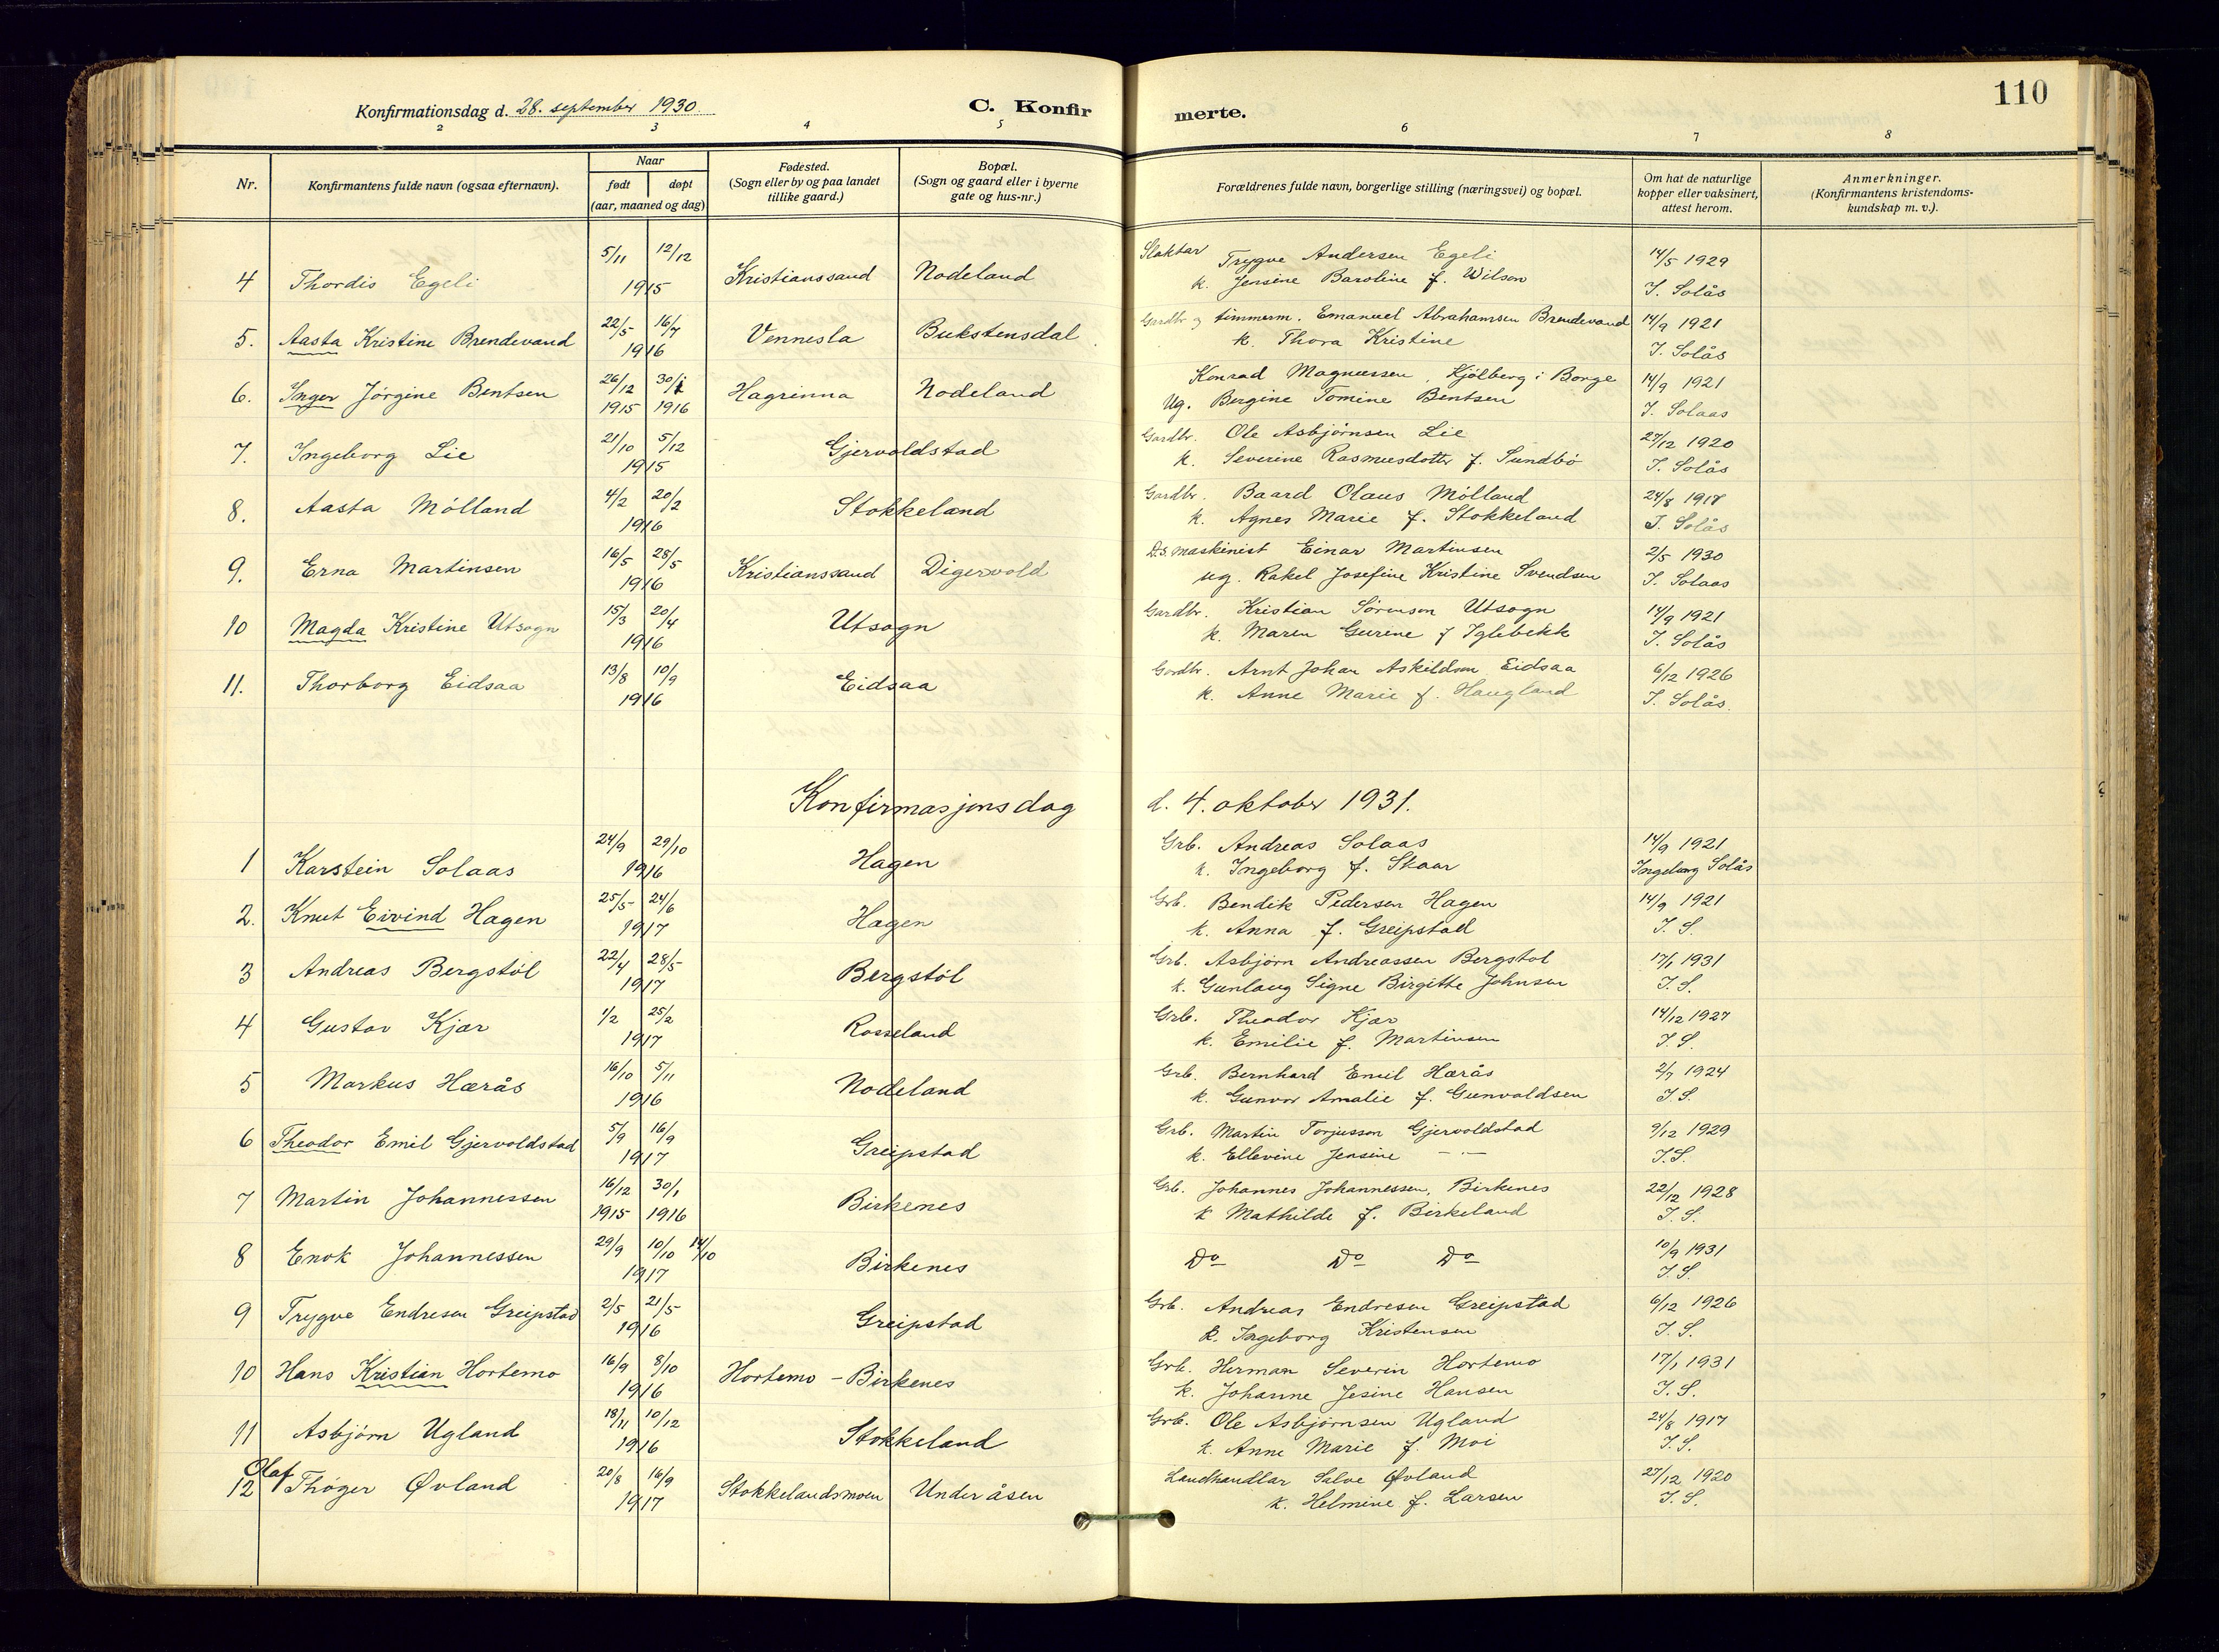 110
Konfirmationsdag d. 28. september 1930.
C. Konfirmerte.
2 3 4 5 6 7 8
Nr.
Konfirmantens fulde navn (ogsaa efternavn).
Naar
født døpt
(aar, maaned og dag)
Fødested.
(Sogn eller by og paa landet
tillike gaard.)
Bopæl.
(Sogn og gaard eller i byerne
gate og hus-nr.)
Forældrenes fulde navn, borgerlige stilling (næringsvei) og bopæl.
Om hat de naturlige
kopper eller vaksinert,
attest herom.
Anmerkninger.
(Konfirmantens kristendoms-
kundskap m. v.).
5/11 12/12 Slaktar Trygve Andersen Egeli 14/5 1929
4 Thordis Egeli 1915 Kristianssand Nodeland k. Jensine Baroline f. Wilson I. Solås
22/5 16/7 Gardbr og timmerm. Emanuel Abrahamsen Brendevand 14/9 1921
5. Aasta Kristine Brendevand 1916 Vennesla Bukstensdal k. Thora Kristine I. Solås
26/12 30/1 Konrad Magnussen, Kjølberg i Borge 14/9 1921
6. Inger Jørgine Bentsen 1915 1916 Hagrinna Nodeland Ug. Bergine Tomine Bentsen I. Solaas
21/10 5/12 Gardbr. Ole Asbjørnsen Lie 27/12 1920
7. Ingeborg Lie 1915 Gjervoldstad k. Severine Rasmusdotter f. Sundbø I. Solås
4/2 20/2 Gardbr. Baard Olaus Mölland 24/8 1918
8. Aasta Mölland 1916 Stokkeland k. Agnes Marie f. Stokkeland I. Solås
16/5 28/5 D.s. maskinist Einar Martinsen 2/5 1930
9. Erna Martinsen 1916 Kristianssand Digervold ug. Rakel Josefine Kristine Svendsen I. Solaas
15/3 20/4 Gardbr. Kristian Sørenson Utsogn 14/9 1921
10 Magda Kristine Utsogn 1916 Utsogn k. Maren Gurene f Iglebekk I. Solås
13/8 10/9 Gardbr. Arnt Johan Askildsen Eidsaa 6/12 1926
11. Thorborg Eidsaa 1916 Eidsaa k. Anne Marie f. Haugland I. Solås.
Konfirmasjonsdag d. 4. oktober 1931.
24/9 29/10 Grb. Andreas Solaas 14/9 1921
1 Karstein Solaas 1916 Hagen k. Ingeborg f. Skaar Ingeborg Solås
25/5 24/6 Grb. Bendik Pedersen Hagen 14/9 1921
2. Knut Eivind Hagen 1917 Hagen k. Anna f. Greipstad I. S.
22/4 28/5 Grb. Asbjørn Andreassen Bergstøl 17/1 1931
3 Andreas Bergstöl 1917 Bergstöl k. Gunlaug Signe Birgitte Johnsen I. S.
1/2 25/2 Grb. Theodor Kjær 14/12 1927
4 Gustav Kjær 1917 Rosseland k. Emilie f. Martinsen I. S.
16/10 5/11 Grb. Bernhard Emil Hærås 2/7 1924
5 Markus Hærås 1916 Nodeland k. Gunvor Amalie f. Gunvaldsen I. S.
5/9 16/9 Grb. Martin Torjusson Gjervoldstad 9/12 1929
6 Theodor Emil Gjervoldstad 1917 Greipstad k. Ellevine Jensine — " — I. S.
16/12 30/1 Grb. Johannes Johannessen, Birkenes 22/12 1928
7 Martin Johannessen 1915 1916 Birkenes k Mathilde f. Birkeland I. S.
29/9 10/10 14/10 Do Do Do 10/9 1931
8 Enok Johannessen 1917 Birkenes I. S.
2/5 21/5 Grb. Andreas Endresen Greipstad 6/12 1926
9 Trygve Endresen Greipstad 1916 Greipstad k. Ingeborg Kristensen I. S.
16/9 8/10 Grb. Herman Severin Hortemo 17/1 1931
10 Hans Kristian Hortemo 1916 Hortemo – Birkenes k. Johanne Jesine Hansen I. S.
18/11 10/12 Grb. Ole Asbjørnsen Ugland 24/8 1917
11 Asbjørn Ugland 1916 Stokkeland k. Anne Marie f. Moi I. S.
Olaf 20/8 16/9 Landhandlar Salve Øvland 27/12 1920
12 Thöger Øvland 1917 Stokkelandsmoen Under åsen k. Helmine f. Larsen I. S.